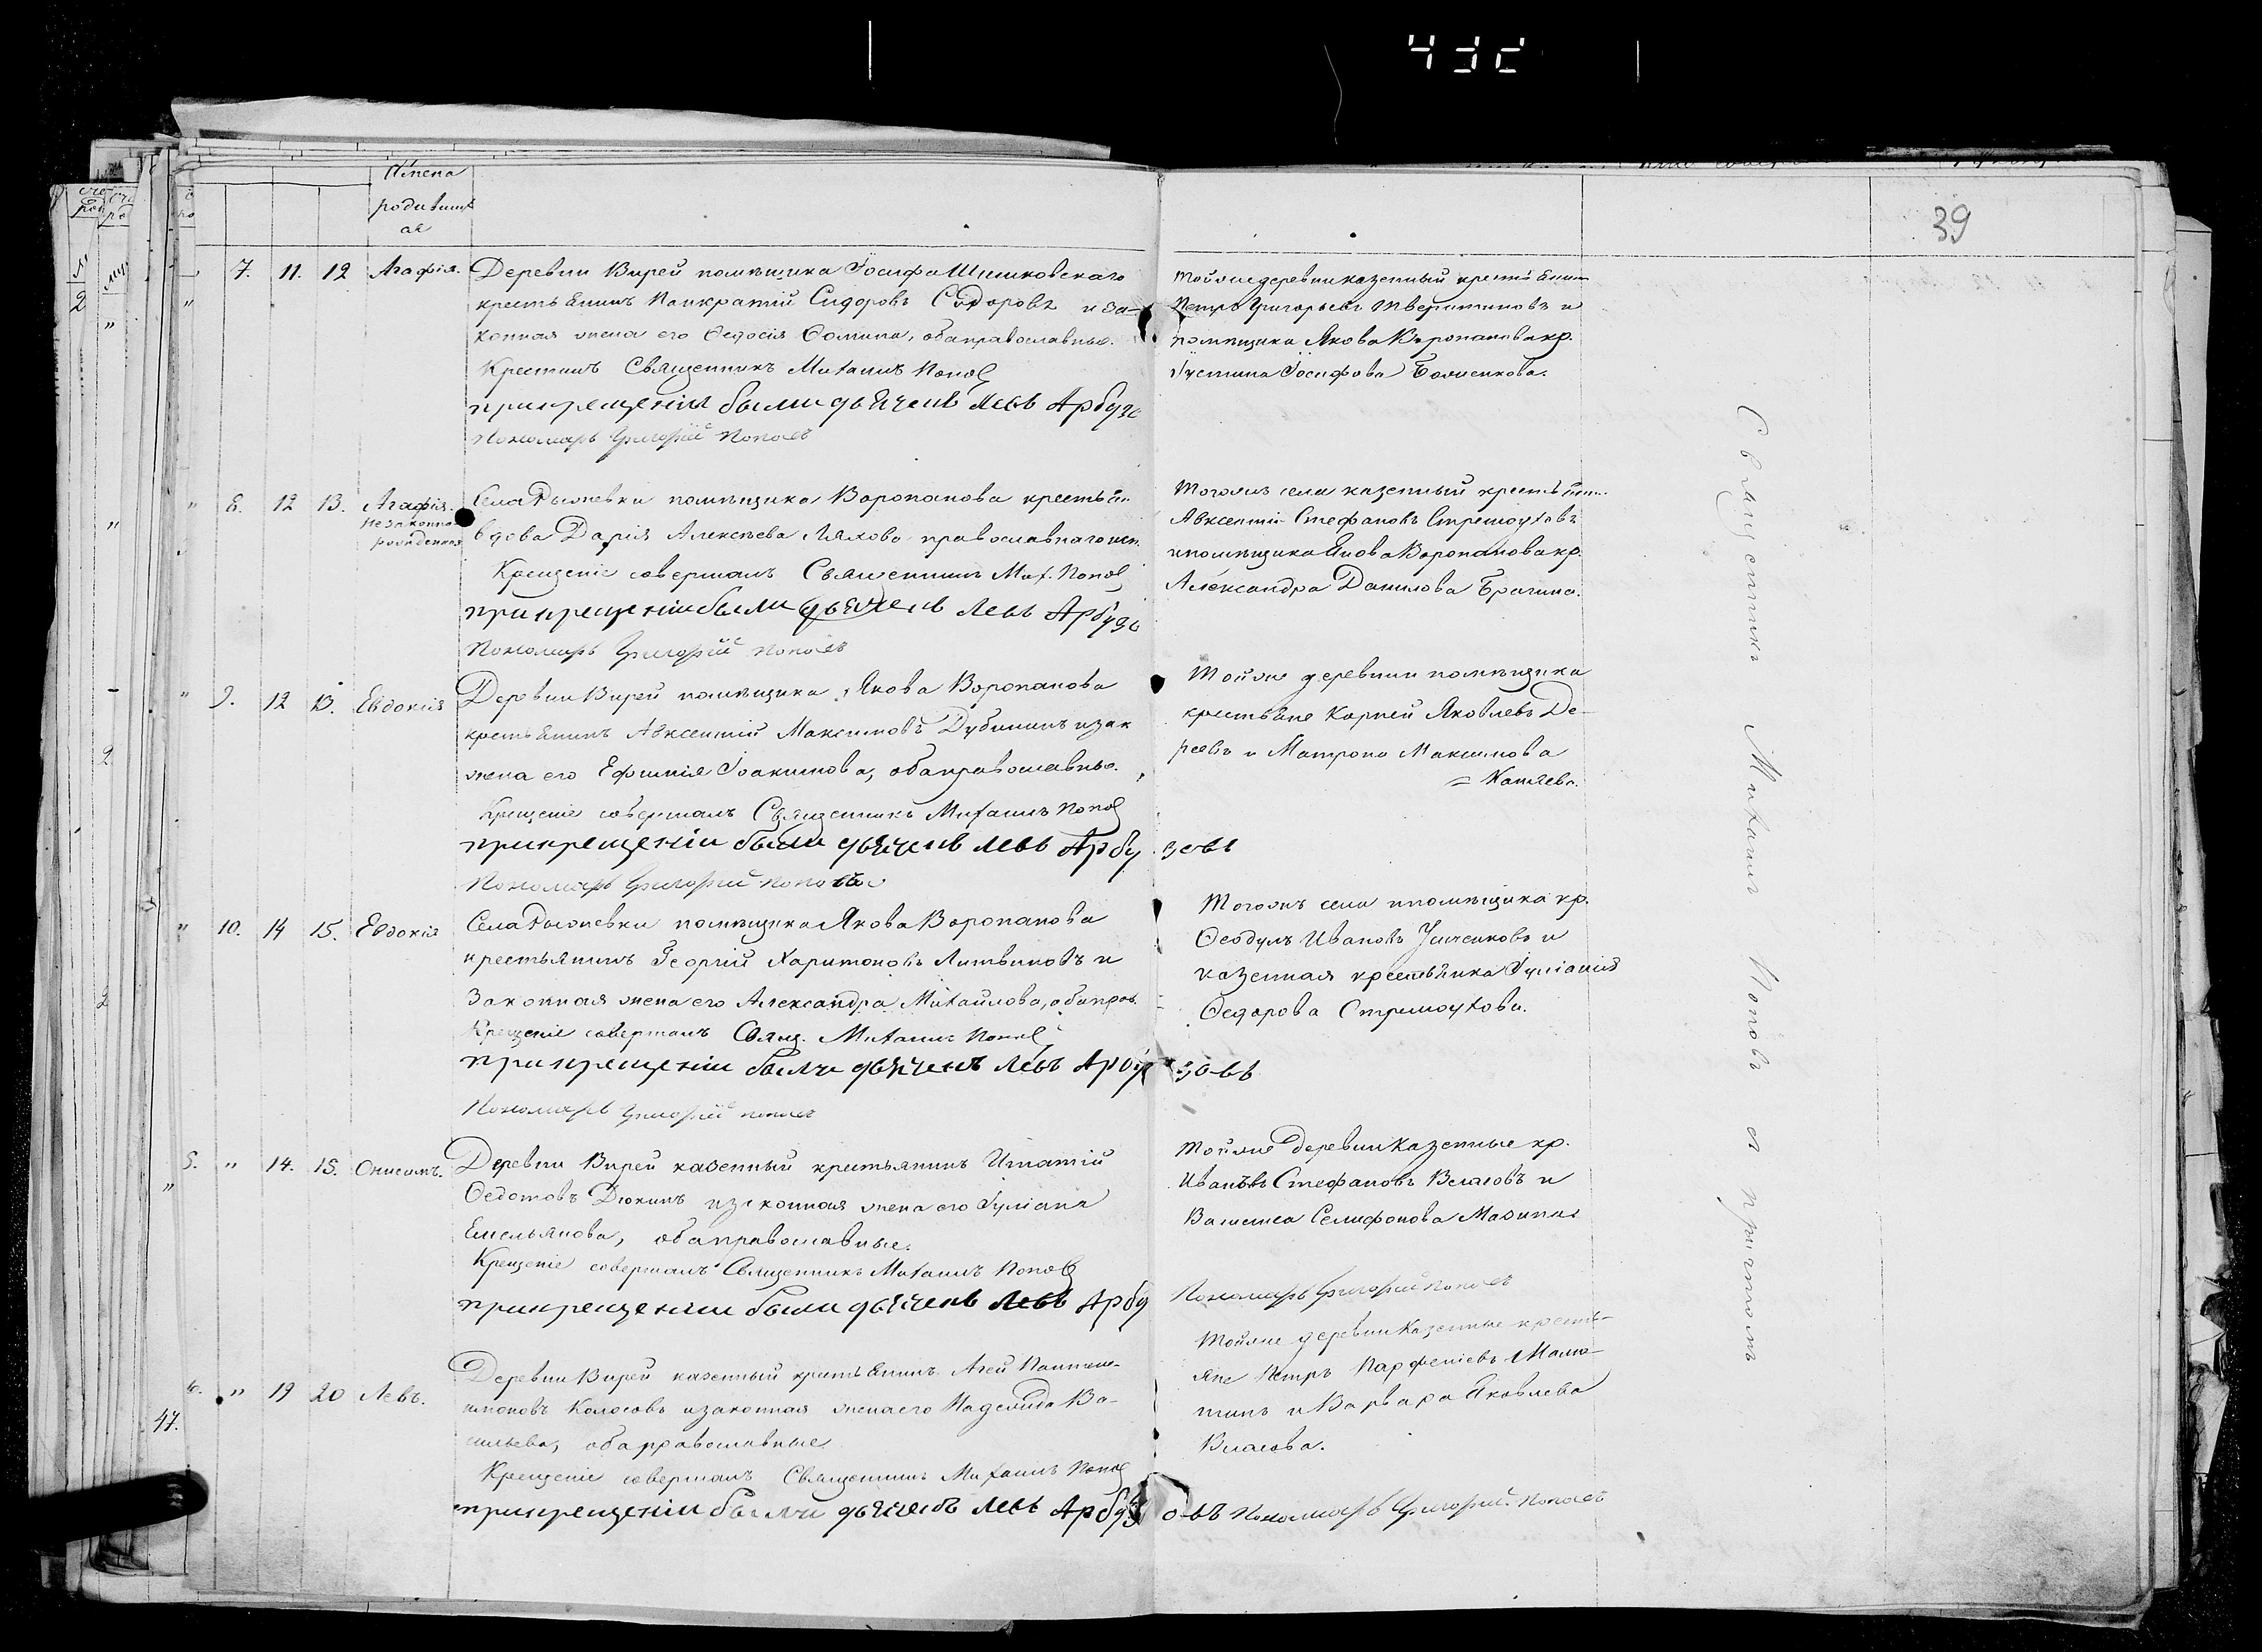 432
39
Имена
родивших
ся
7. 11. 12 Агафія. Деревни Вирей помѣщика Іосифа Шишковскаго
крестьянинъ Панкратій Сидоровъ Сидоровъ и за-
конная жена его Ѳедосія Ѳомина, оба православные.
Крестилъ Священникъ Михаилъ Попов
при крещеніи были дьячекъ Левъ Арбузо
Пономарь Григорій Поповъ
той же деревни казенный крестьянин
Петръ Григорьевъ Тверитиновъ и
помѣщика Якова Воропанова кр.
Іустина Іосифова
8. 12 13. Агафія. Села помѣщика Воропанова крестьян.
незаконно
рожденная
вдова Дарія Алексѣева Ляхова православнаго исп.
Крещеніе совершалъ Священникъ Мих. Попов
при крещеніи были дьячекъ Левъ Арбузо
Пономарь Григорій Поповъ
Тогожъ села казенный крестьян.
Авксентій Стефановъ Стремоуховъ
и помѣщика Якова Воропанова кр.
Александра Данилова Брагина.
9. 12 13. Евдокія Деревни Вирей помѣщика Якова Воропанова
крестьянинъ Авксентій Максимовъ Дубининъ и зак
жена его Ефимія Іоакимова, оба православные.
Крещеніе совершалъ Священникъ Михаилъ Попов
при крещеніи были дьячекъ Левъ Арбузовъ
Пономарь Григорій Поповъ
Той же деревни помѣщика
крестьяне Корней Яковлевъ Де-
реевъ и Матрона Максимова
= Катяева.
10. 14 15. Евдокія Села помѣщика Якова Воропанова
крестьянинъ Георгій Харитоновъ Литвиновъ и
Законная жена его Александра Михайлова, оба прав.
Крещеніе совершалъ Свящ. Михаилъ Попов
при крещеніи были дьячекъ Левъ Арбузовъ
Пономарь Григорій Поповъ
Тогожъ села помѣщика кр.
Ѳеодулъ Ивановъ и
казенная крестьянка Іуліанія
Ѳедорова Стремоухова.
5. " 14. 15. Онисимъ. Деревни Вирей казенный крестьянинъ Игнатій
Ѳедотовъ Дюкинъ и законная жена его Іуліана
Емельянова, оба православные.
Крещеніе совершалъ Священникъ Михаилъ Попов
при крещеніи были дьячекъ Левъ Арбу
Той же деревни Казенные кр.
Ивановъ Стефановъ Власовъ и
Василиса Селифонова
Пономарь Григорій Поповъ
6. " 19 20 Левъ. Деревни Вирей казенный крестьянинъ Агей
Колосовъ и законная жена его Надежда Ва-
сильева, оба православные
Крещеніе совершалъ Священникъ Михаилъ Попов
при крещеніи были дьячекъ Левъ Арбузовъ Пономарь Григорій Поповъ
Той же деревни Казенные кресть-
яне Петръ Парфеніевъ Мама-
тинъ и Варвара Яковлева
Власова.
47.
Священникъ Михаилъ Поповъ съ причтомъ